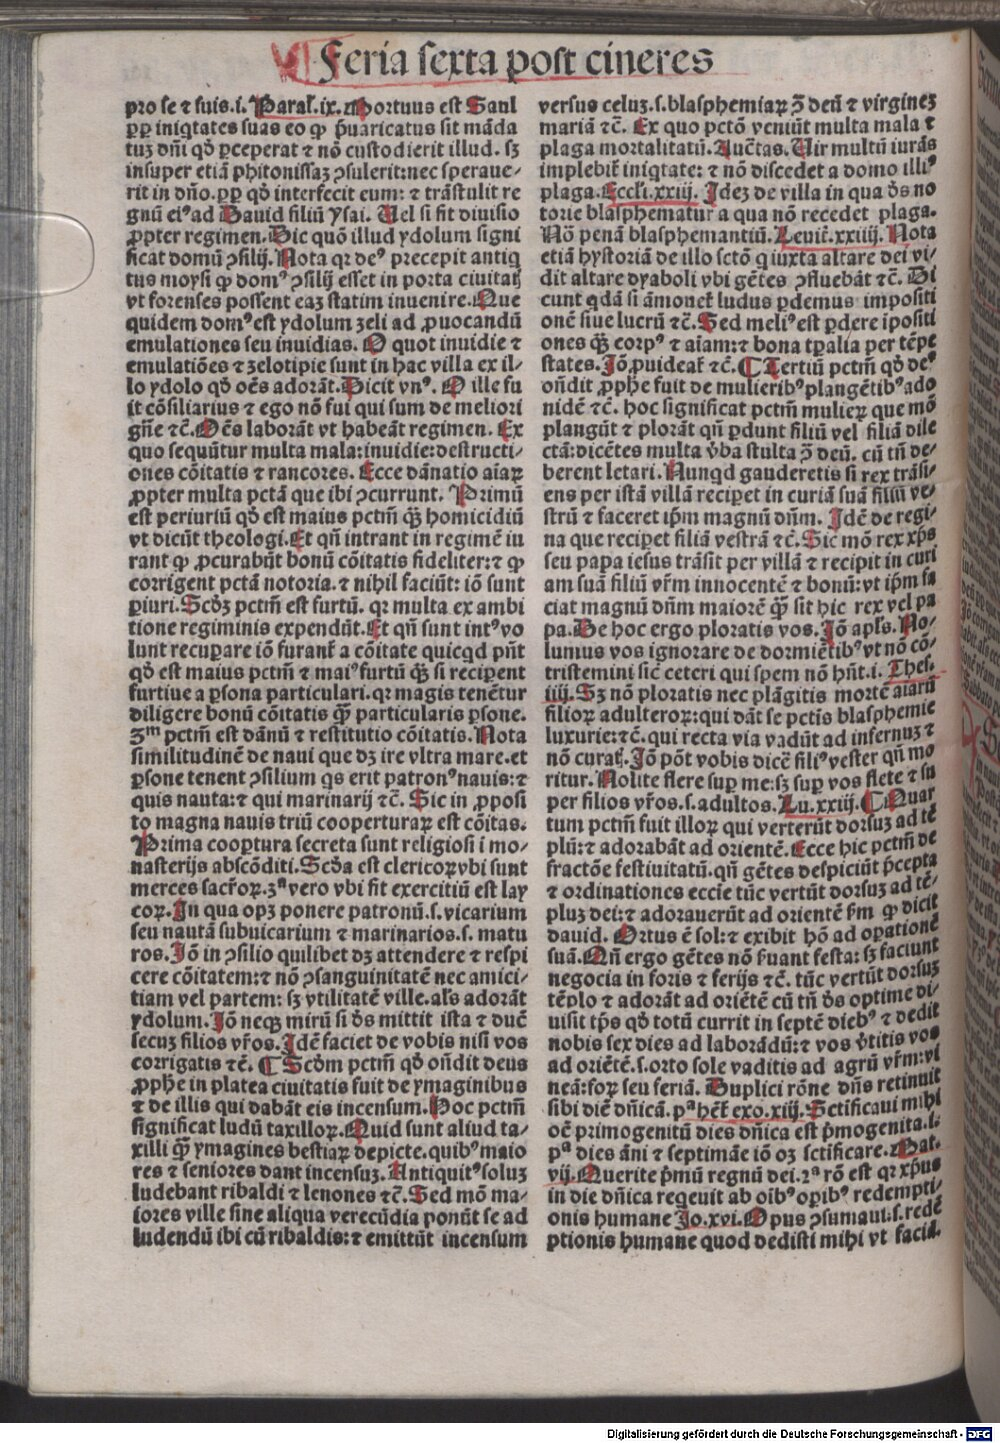 Feria sexta post cineres
pro se ⁊ suis.i. Paral̃.ix. Mortuus est Saul
ꝓp iniqtates suas eo ꝙ p̃uaricatus sit mãda
tuꝫ dñi qď p̱ceperat ⁊ nõ custodierit illud. sꝫ
insuper etiã phitonissaꝫ ꝯsulerit:nec speraue-
rit in dño.ꝓp qď interfecit eum: ⁊ trãstulit re
gnũ eiꝰ ad Dauid filiũ ysai. Uel si fit diuisio
ꝓpter regimen. Sic quõ illud ydolum signi
ficat domũ ꝯsilij. Nota qꝛ deꝰ precepit antiq
tus moysi ꝙ domꝰ ꝯsilij esset in porta ciuitatꝭ
vt forenses possent eaꝫ statim inuenire. Que
quidem domꝰ est ydolum zeli ad ꝓuocandũ
emulationes seu inuidias. O quot inuidie ⁊
emulatiões ⁊ zelotipie sunt in hac villa ex il-
lo ydolo qď oẽs adorãt. Dicit vnꝰ. O ille fu
it cõsiliarius ⁊ ego nõ fui qui sum de meliori
gñe ⁊c̃. Oẽs laborãt vt habeãt regimen. Ex
quo sequũtur multa mala:inuidie:destructi-
ones cõitatis ⁊ rancores. Ecce dãnatio aĩaꝝ
ꝓpter multa pctã que ibi ꝯcurrunt. Primũ
est periuriũ qď est maius pctm̃ q̃ꝫ homicidiũ
vt dicũt theologi. Et qñ intrant in regimẽ iu
rant ꝙ ꝓcurabũt bonũ cõitatis fideliter:⁊ ꝙ
corrigent pctã notoria.⁊ nihil faciũt: iõ sunt
ꝑiuri. Scďꝫ pctm̃ est furtũ. qꝛ multa ex ambi
tione regiminis expendũt. Et qñ sunt intꝰ vo
lunt recuꝑare iõ furant̃ a cõitate quicqd pñt
qď est maius pctm̃ ⁊ maiꝰ furtũ q̃ꝫ si reciꝑent
furtiue a ꝑsona particulari. qꝛ magis tenẽtur
diligere bonũ cõitatis q̃ꝫ particularis ꝑsone.
3ᵐ pctm̃ est dãnũ ⁊ restitutio cõitatis. Nota
similitudinẽ de naui que dꝫ ire vltra mare.et
ꝑsone tenent ꝯsilium qs erit patronꝰ nauis:⁊
quis nauta:⁊ qui marinarij ⁊c̃. Sic in ꝓposi
to magna nauis triũ cooperturaꝝ est cõitas.
Prima cooꝑtura secreta sunt religiosi i mo-
nasterijs abscõditi. Scďa est clericoꝝ vbi sunt
merces sacr̃oꝝ. 3ª vero vbi fit exercitiũ est lay
coꝝ. In qua opꝫ ponere patronũ.s.vicarium
seu nautã subuicarium ⁊ marinarios.s. matu
ros. Iõ in ꝯsilio quilibet dꝫ attendere ⁊ respi
cere cõitatem:⁊ nõ ꝯsanguinitatẽ nec amici-
tiam vel partem: sꝫ vtilitatẽ ville.al̃s adorãt
ydolum. Iõ neqꝫ mirũ si ďs mittit ista ⁊ ducẽ
secuꝫ filios vr̃os. Idẽ faciet de vobis nisi vos
corrigatis ⁊c̃. ¶ Scďm pctm̃ qď oñdit deus
ꝓphe in platea ciuitatis fuit de ymaginibus
⁊ de illis qui dabãt eis incensum. Hoc pctm̃
significat ludũ taxilloꝝ. Quid sunt aliud ta-
xilli q̃ꝫ ymagines bestiaꝝ depicte.quibꝰ maio
res ⁊ seniores dant incensuꝫ. Antiquitꝰ soluꝫ
ludebant ribaldi ⁊ lenones ⁊c̃. Sed mõ ma-
iores ville sine aliqua verecũdia ponũt se ad
ludendũ ibi cũ ribaldis:⁊ emittũt incensum
versus celuꝫ.s.blasphemiaꝝ ꝯ̃ deũ ⁊ virgineꝫ
mariã ⁊c̃. Ex quo pctõ veniũt multa mala ⁊
plaga mortalitatũ. Auc̃tas. Uir multũ iurãs
implebit̃ iniqtate: ⁊ nõ discedet a domo illiꝰ
plaga. Eccli.xxiij. Ideꝫ de villa in qua ďs no
torie blasphematur a qua nõ recedet plaga.
Nõ penã blasphemantiũ. Leuic̃.xxiiij. Nota
etiã hystoriã de illo sctõ q iuxta altare dei vi-
dit altare dyaboli vbi gẽtes ꝯfluebãt ⁊c̃. Di
cunt qdã si ãmonet̃ ludus ꝑdemus impositi
onẽ siue lucrũ ⁊c̃. Sed meliꝰ est ꝑdere ipositi
ones q̃ꝫ corpꝰ ⁊ aĩam:⁊ bona tꝑalia per tẽpe
states. Iõ ꝓuideat̃ ⁊c̃. ¶ Tertiũ pctm̃ qď deꝰ
oñdit ꝓphe fuit de mulieribꝰ plangẽtibꝰ ado
nidẽ ⁊c̃. hoc significat pctm̃ mulieꝝ que mõ
plangũt ⁊ plorãt qñ ꝑdunt filiũ vel filiã dile
ctã:dicẽtes multa v̓ba stulta ꝯ̃ deũ. cũ tñ de-
berent letari. Nunqd gauderetis si rex trãsi-
ens per istã villã reciꝑet in curiã suã filiũ ve-
strũ ⁊ faceret ip̃m magnũ dñm. Idẽ de regi-
na que reciꝑet filiã vestrã ⁊c̃. Sic mõ rex xp̃s
seu papa iesus trãsit per villã ⁊ recipit in curi
am suã filiũ vr̃m innocentẽ ⁊ bonũ:vt ip̃m fa
ciat magnũ dñm maiorẽ q̃ꝫ sit hic rex vel pa
pa. De hoc ergo ploratis vos. Iõ apl̃s. No-
lumus vos ignorare de dormiẽtibꝰ vt nõ cõ-
tristemini sic̃ ceteri qui spem nõ hñt.i. Thes.
iiij. Sꝫ nõ ploratis nec plãgitis mortẽ aĩarũ
filioꝝ adulteroꝝ:qui dãt se pctis blasphemie
luxurie:⁊c̃.qui recta via vadũt ad infernuꝫ ⁊
nõ curatꝭ. Iõ põt vobis dicẽ filiꝰ vester qñ mo
ritur. Nolite flere suꝑ me:sꝫ suꝑ vos flete ⁊ su
per filios vr̃os.s.adultos. Lu.xxiij. ¶ Quar
tum pctm̃ fuit illoꝝ qui verterũt dorsuꝫ ad tẽ
plũ:⁊ adorabãt ad orientẽ. Ecce hic pctm̃ de
fractõe festiuitatũ.qñ gẽtes despiciũt p̃cepta
⁊ ordinationes eccĩe tũc vertũt dorsuꝫ ad tẽ-
pluꝫ dei:⁊ adorauerũt ad orientẽ ẜm ꝙ dicit
dauid. Ortus ẽ sol:⁊ exibit hõ ad oꝑationẽ
suã. Qñ ergo gẽtes nõ ẜuant festa: sꝫ faciunt
negocia in foris ⁊ ferijs ⁊c̃. tũc vertũt dorsuꝫ
tẽplo ⁊ adorãt ad oriẽtẽ cũ tñ ďs optime di-
uisit tp̃s qď totũ currit in septẽ diebꝰ ⁊ dedit
nobis sex dies ad laborãdũ:⁊ vos v̓titis vos
ad oriẽtẽ.s.orto sole vaditis ad agrũ vr̃m:vi
neã:foꝝ seu feriã. Duplici rõne dñs retinuit
sibi diẽ dñicã. pª hẽt̃ exo.xiij. Sctificaui mihi
oẽ primogenitũ dies dñica est p̃mogenita.s.
pª dies ãni ⁊ septimãe iõ oꝫ sctificare. Mat-
vij. Querite p̃mũ regnũ dei. 2ª rõ est qꝛ xp̃us
in die dñica reqeuit ab oĩbꝰ oꝑibꝰ redempti-
onis humane Jo.xvi. Opus ꝯsumaui.s.redẽ
ptionis humane quod dedisti mihi vt faciã.
Digitalisierung gefördert durch die Deutsche Forschungsgemeinschaft - DFG